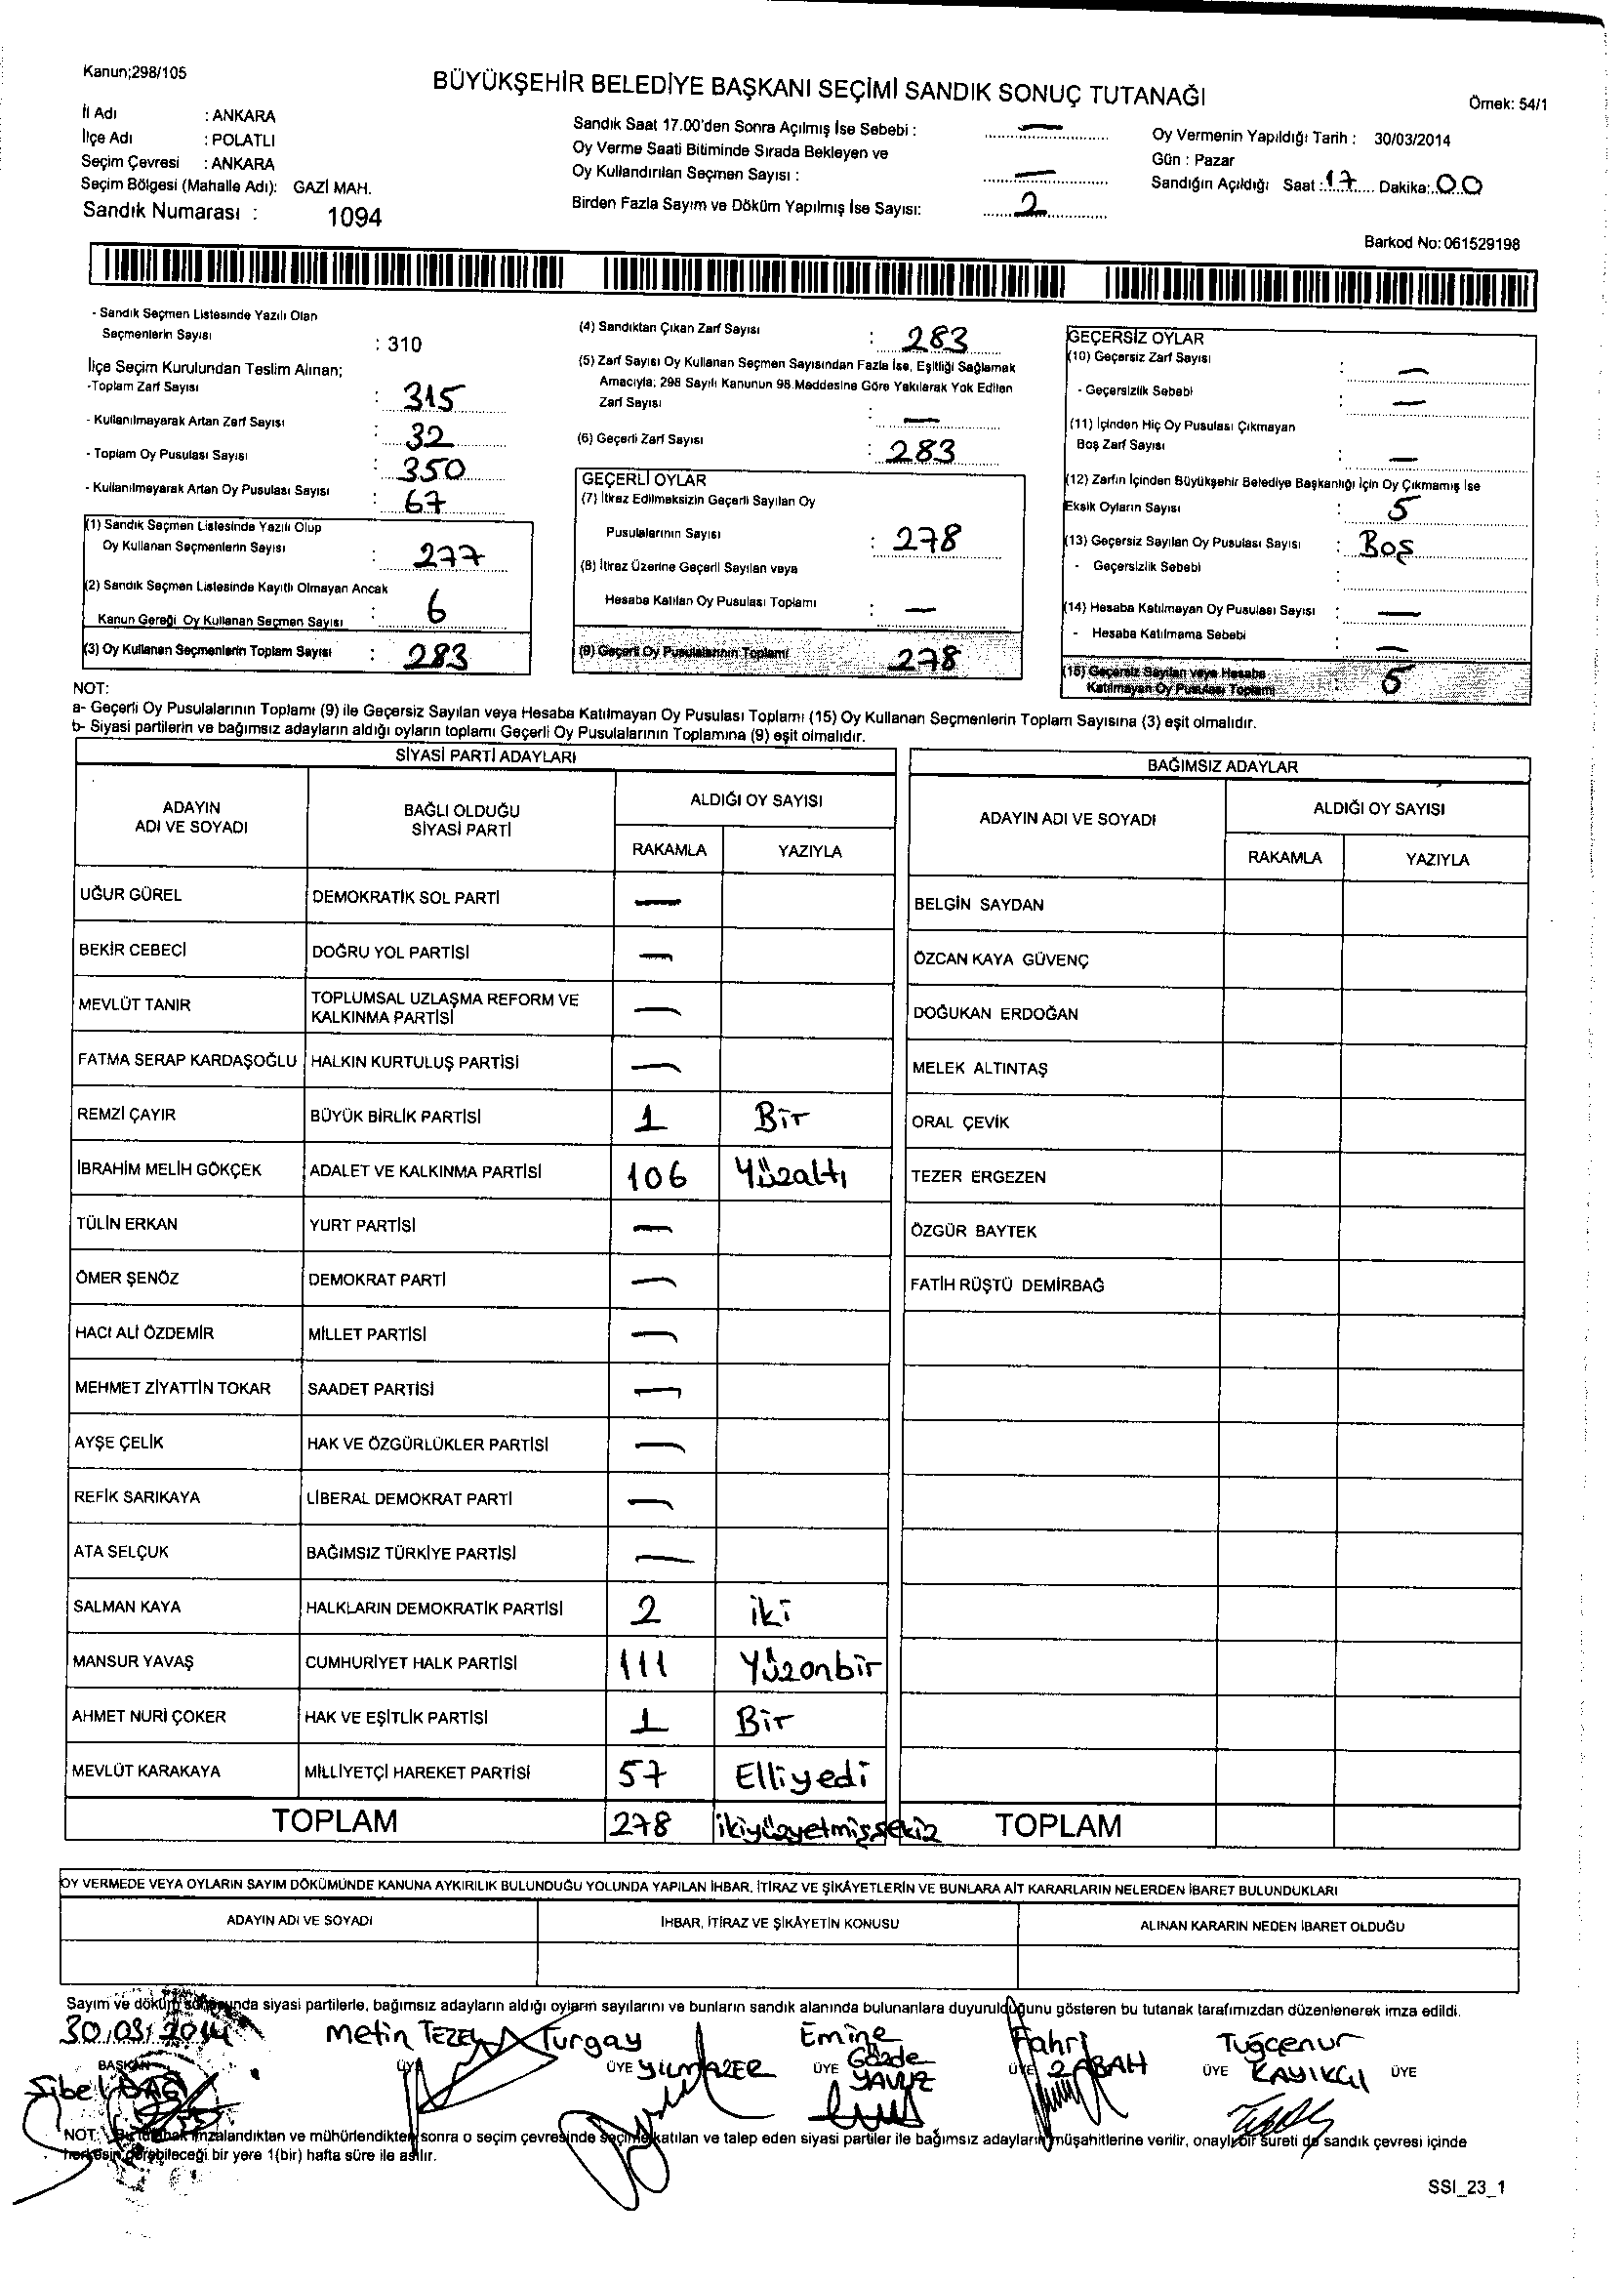 Kanun;298/105
BÜYÜKŞEHİR BELEDİYE BAŞKANI SEÇİMİ SANDIK SONUÇ TUTANAĞI
Örnek: 54/1
İl Adı : ANKARA
İlçe Adı : POLATLI
Seçim Çevresi : ANKARA
Seçim Bölgesi (Mahalle Adı): GAZİ MAH.
Sandık Numarası : 1094
Sandık Saat 17.00'den Sonra Açılmış İse Sebebi : —
Oy Verme Saati Bitiminde Sırada Bekleyen ve
Oy Kullandırılan Seçmen Sayısı : —
Birden Fazla Sayım ve Döküm Yapılmış İse Sayısı: 2
Oy Vermenin Yapıldığı Tarih : 30/03/2014
Gün : Pazar
Sandığın Açıldığı Saat :17 Dakika:00
Barkod No: 061529198
- Sandık Seçmen Listesinde Yazılı Olan
Seçmenlerin Sayısı : 310
İlçe Seçim Kurulundan Teslim Alınan;
-Toplam Zarf Sayısı : 315
- Kullanılmayarak Artan Zarf Sayısı : 32
- Toplam Oy Pusulası Sayısı : 350
- Kullanılmayarak Artan Oy Pusulası Sayısı : 67
(1) Sandık Seçmen Listesinde Yazılı Olup
Oy Kullanan Seçmenlerin Sayısı : 277
(2) Sandık Seçmen Listesinde Kayıtlı Olmayan Ancak
Kanun Gereği Oy Kullanan Seçmen Sayısı : 6
(3) Oy Kullanan Seçmenlerin Toplam Sayısı : 283
(4) Sandıktan Çıkan Zarf Sayısı : 283
(5) Zarf Sayısı Oy Kullanan Seçmen Sayısından Fazla İse, Eşitliği Sağlamak
Amacıyla; 298 Sayılı Kanunun 98.Maddesine Göre Yakılarak Yok Edilen
Zarf Sayısı : —
(6) Geçerli Zarf Sayısı : 283
GEÇERLİ OYLAR
(7) İtiraz Edilmeksizin Geçerli Sayılan Oy
Pusulalarının Sayısı : 278
(8) İtiraz Üzerine Geçerli Sayılan veya
Hesaba Katılan Oy Pusulası Toplamı : —
(9) Geçerli Oy Pusulalarının Toplamı 278
GEÇERSİZ OYLAR
(10) Geçersiz Zarf Sayısı : —
- Geçersizlik Sebebi : —
(11) İçinden Hiç Oy Pusulası Çıkmayan
Boş Zarf Sayısı : —
(12) Zarfın İçinden Büyükşehir Belediye Başkanlığı İçin Oy Çıkmamış İse
Eksik Oyların Sayısı : 5
(13) Geçersiz Sayılan Oy Pusulası Sayısı : Boş
- Geçersizlik Sebebi :
(14) Hesaba Katılmayan Oy Pusulası Sayısı : —
- Hesaba Katılmama Sebebi : —
(15) Geçersiz Sayılan veya Hesaba
Katılmayan Oy Pusulası Toplamı 5
NOT:
a- Geçerli Oy Pusulalarının Toplamı (9) ile Geçersiz Sayılan veya Hesaba Katılmayan Oy Pusulası Toplamı (15) Oy Kullanan Seçmenlerin Toplam Sayısına (3) eşit olmalıdır.
b- Siyasi partilerin ve bağımsız adayların aldığı oyların toplamı Geçerli Oy Pusulalarının Toplamına (9) eşit olmalıdır.
SİYASİ PARTİ ADAYLARI
ADAYIN ADI VE SOYADI BAĞLI OLDUĞU SİYASİ PARTİ ALDIĞI OY SAYISI
RAKAMLA YAZIYLA
UĞUR GÜREL DEMOKRATİK SOL PARTİ —
BEKİR CEBECİ DOĞRU YOL PARTİSİ —
MEVLÜT TANIR TOPLUMSAL UZLAŞMA REFORM VE KALKINMA PARTİSİ —
FATMA SERAP KARDAŞOĞLU HALKIN KURTULUŞ PARTİSİ —
REMZİ ÇAYIR BÜYÜK BİRLİK PARTİSİ 1 Bir
İBRAHİM MELİH GÖKÇEK ADALET VE KALKINMA PARTİSİ 106 Yüzaltı
TÜLİN ERKAN YURT PARTİSİ —
ÖMER ŞENÖZ DEMOKRAT PARTİ —
HACI ALİ ÖZDEMİR MİLLET PARTİSİ —
MEHMET ZİYATTİN TOKAR SAADET PARTİSİ —
AYŞE ÇELİK HAK VE ÖZGÜRLÜKLER PARTİSİ —
REFİK SARIKAYA LİBERAL DEMOKRAT PARTİ —
ATA SELÇUK BAĞIMSIZ TÜRKİYE PARTİSİ —
SALMAN KAYA HALKLARIN DEMOKRATİK PARTİSİ 2 iki
MANSUR YAVAŞ CUMHURİYET HALK PARTİSİ 111 Yüzonbir
AHMET NURİ ÇOKER HAK VE EŞİTLİK PARTİSİ 1 Bir
MEVLÜT KARAKAYA MİLLİYETÇİ HAREKET PARTİSİ 57 Elliyedi
TOPLAM 278 ikiyüzyetmişsekiz
BAĞIMSIZ ADAYLAR
ADAYIN ADI VE SOYADI ALDIĞI OY SAYISI
RAKAMLA YAZIYLA
BELGİN SAYDAN
ÖZCAN KAYA GÜVENÇ
DOĞUKAN ERDOĞAN
MELEK ALTINTAŞ
ORAL ÇEVİK
TEZER ERGEZEN
ÖZGÜR BAYTEK
FATİH RÜŞTÜ DEMİRBAĞ
TOPLAM
OY VERMEDE VEYA OYLARIN SAYIM DÖKÜMÜNDE KANUNA AYKIRILIK BULUNDUĞU YOLUNDA YAPILAN İHBAR, İTİRAZ VE ŞİKÂYETLERİN VE BUNLARA AİT KARARLARIN NELERDEN İBARET BULUNDUKLARI
ADAYIN ADI VE SOYADI İHBAR, İTİRAZ VE ŞİKÂYETİN KONUSU ALINAN KARARIN NEDEN İBARET OLDUĞU
Sayım ve döküm sonucunda siyasi partilerle, bağımsız adayların aldığı oyların sayılarını ve bunların sandık alanında bulunanlara duyurulduğunu gösteren bu tutanak tarafımızdan düzenlenerek imza edildi.
30/03/2014
BAŞKAN Sibel DAĞ
ÜYE Metin TEZEL
ÜYE Turgay YILMAZER
ÜYE Emine Gözde YAVUZ
ÜYE Fahri ZABAH
ÜYE Tuğçenur KAYIKÇI
ÜYE
NOT: Bu tutanak imzalandıktan ve mühürlendikten sonra o seçim çevresinde seçime katılan ve talep eden siyasi partiler ile bağımsız adayların müşahitlerine verilir, onaylı bir sureti de sandık çevresi içinde
herkesin görebileceği bir yere 1(bir) hafta süre ile asılır.
SSI_23_1